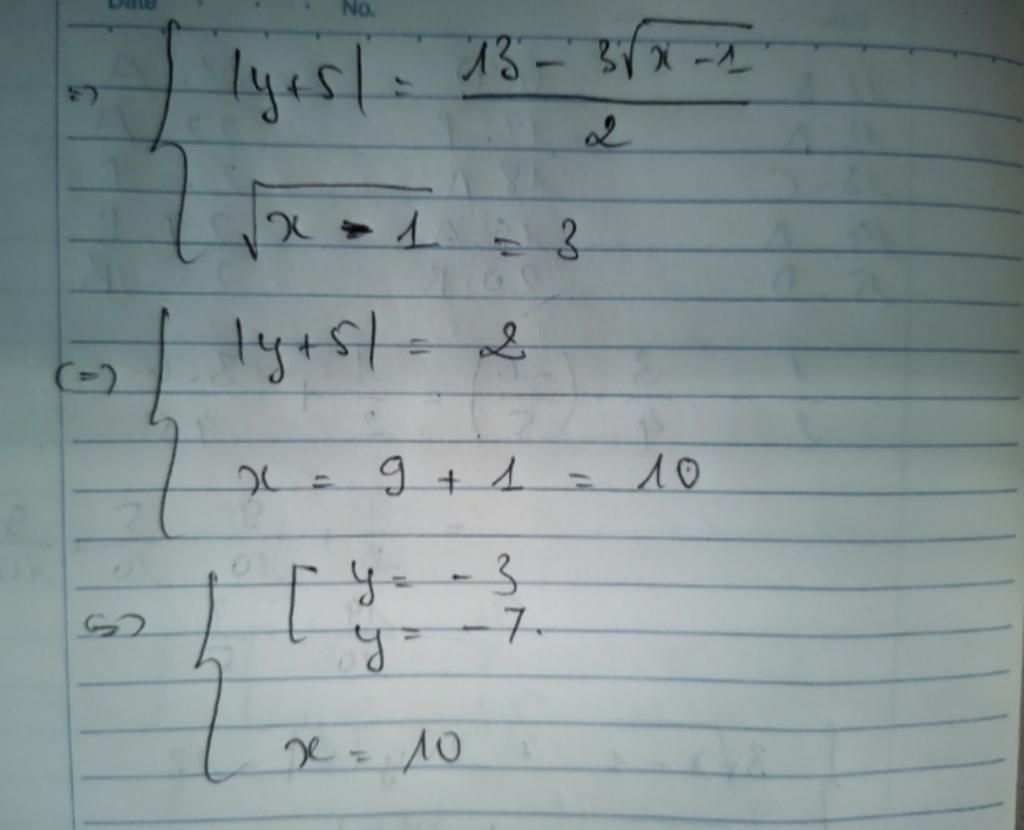 Date No.
=> { |y+5| = (13 - 3√(x-1))/2
√(x - 1) = 3
(=) { |y+5| = 2
x = 9 + 1 = 10
<=> { [ y = -3
y = -7.
x = 10